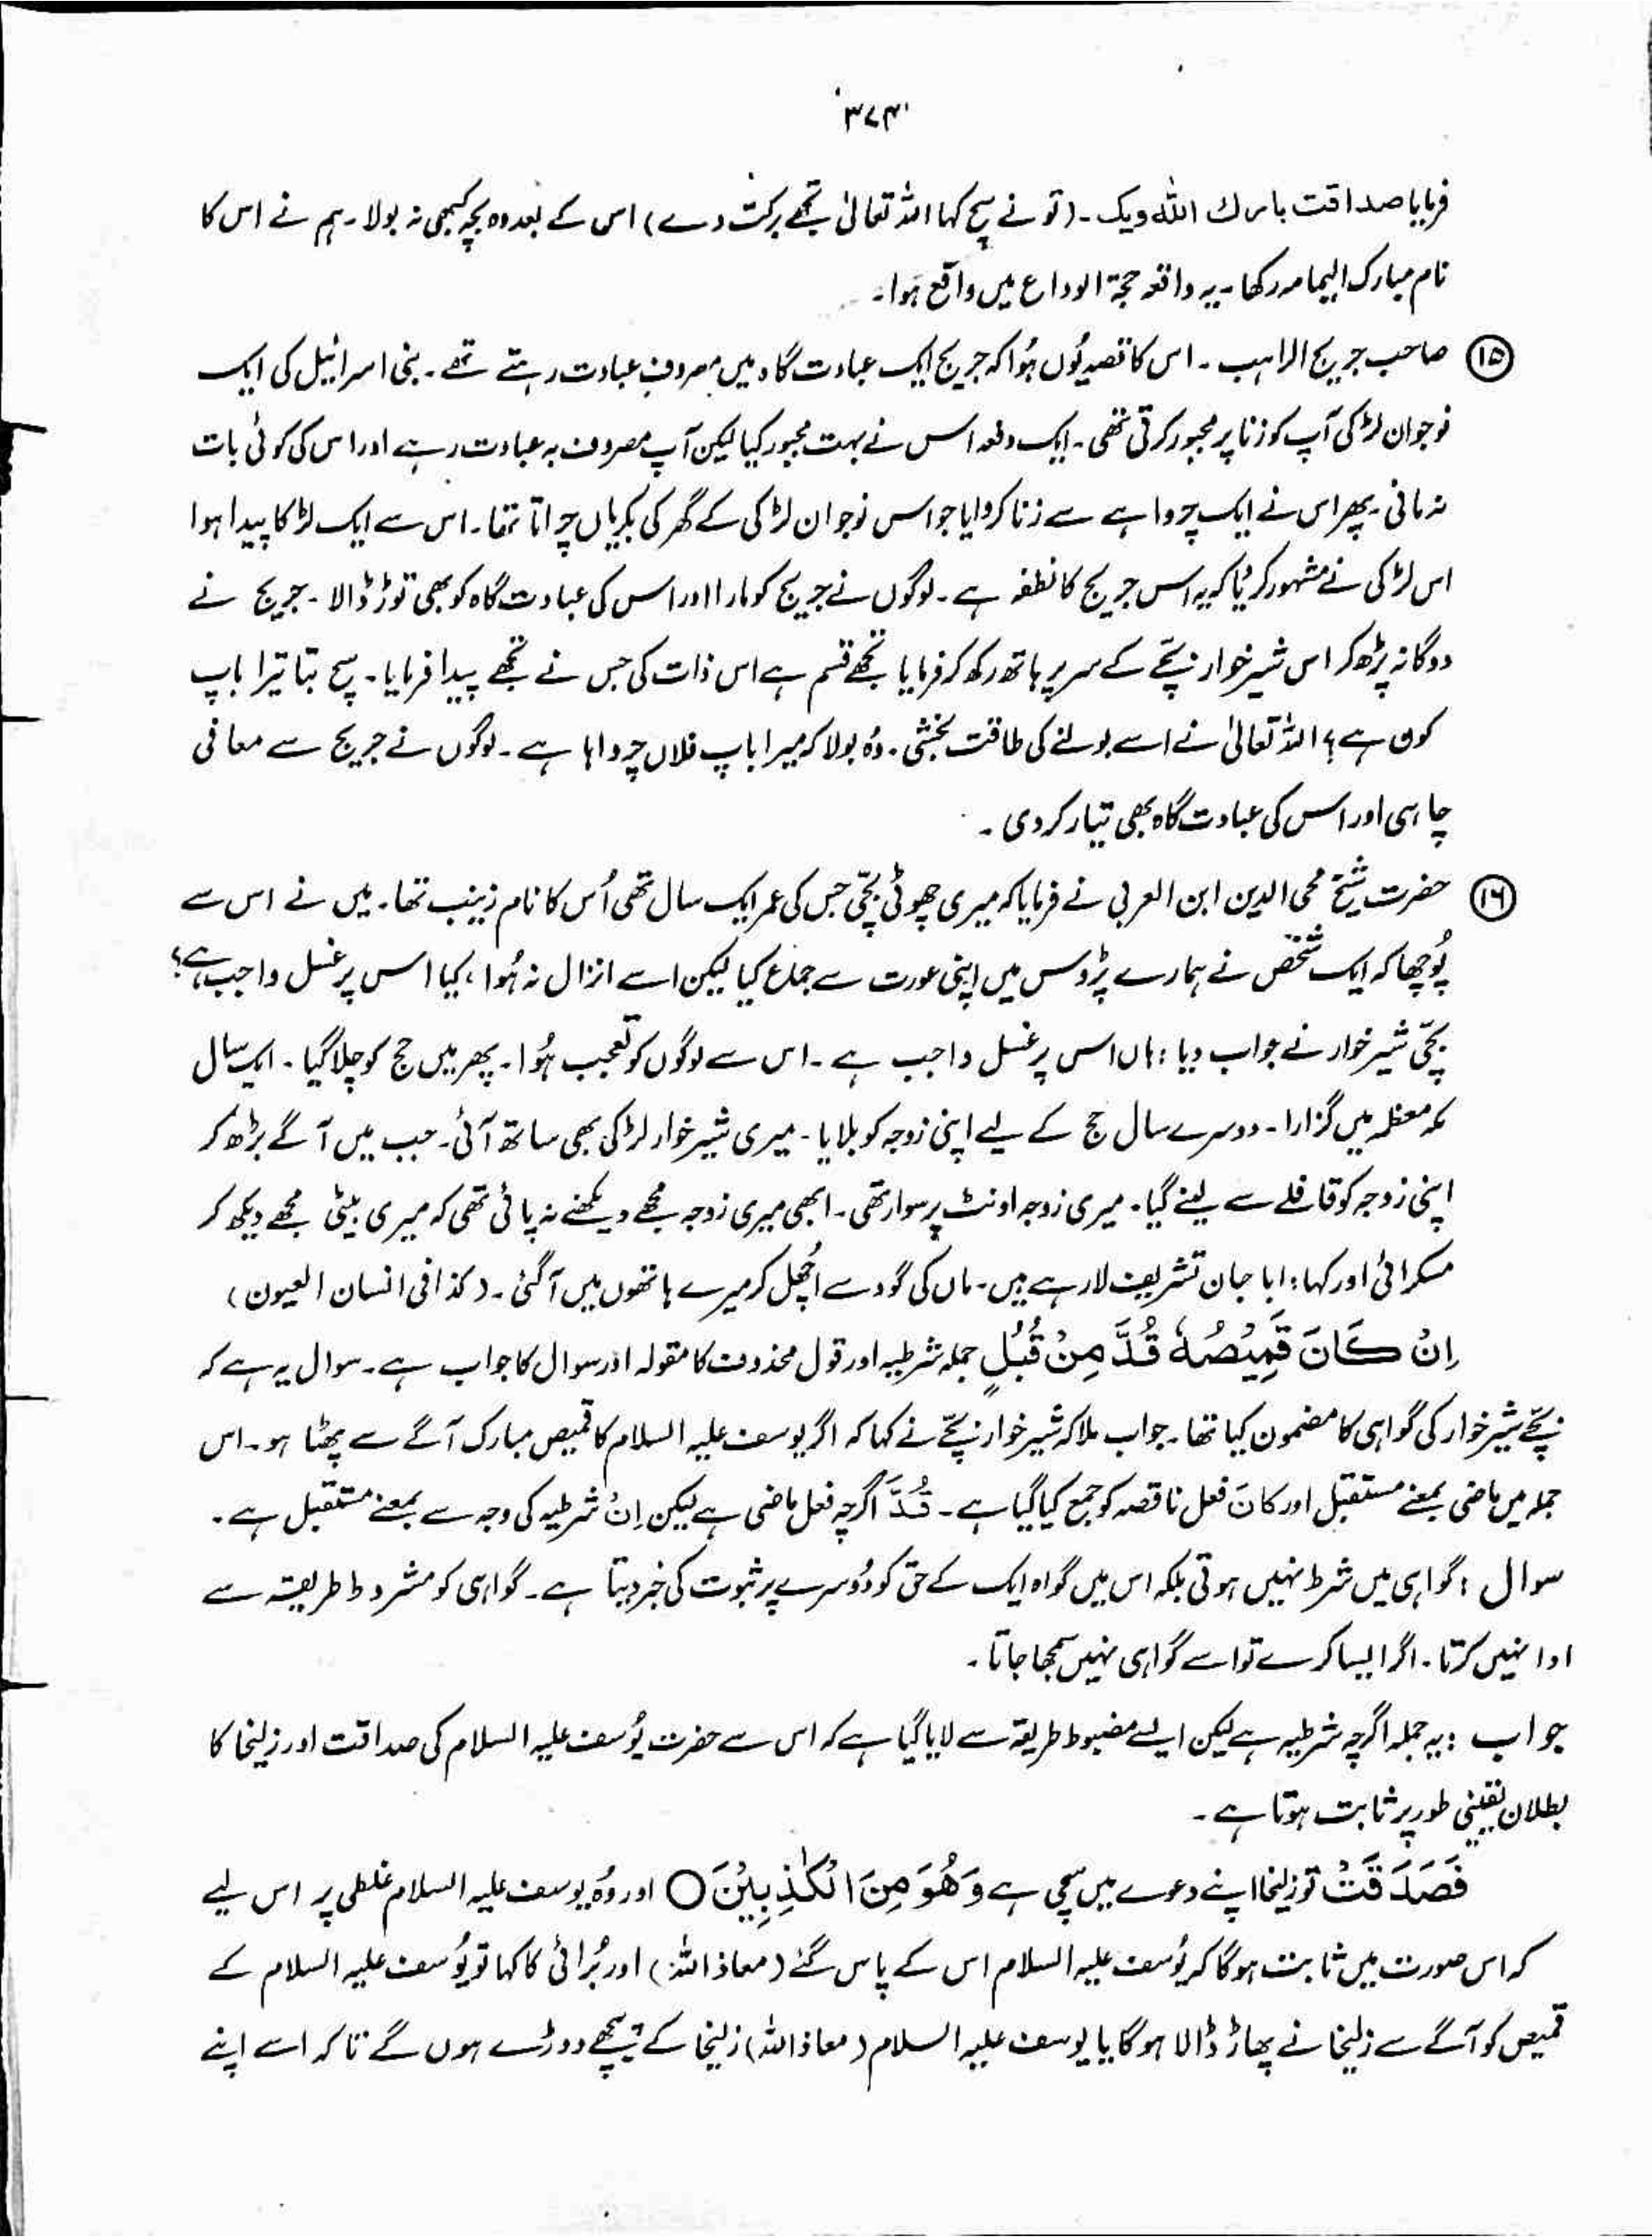 ۳۷۴
فرمایا صداقت بارك الله ويك ۔ (تو نے سچ کہا اللہ تعالیٰ تجھے برکت دے) اس کے بعد وہ بچہ کبھی نہ بولا ۔ ہم نے اس کا
نام مبارک الیمامہ رکھا ۔ یہ واقعہ حجۃ الوداع میں واقع ہوا ۔
⑮ صاحب جریج الراہب ۔ اس کا قصہ یُوں ہُوا کہ جریج ایک عبادت گاہ میں مصروفِ عبادت رہتے تھے ۔ بنی اسرائیل کی ایک
نوجوان لڑکی آپ کو زنا پر مجبور کرتی تھی ۔ ایک دفعہ اس نے بہت مجبور کیا لیکن آپ مصروف بہ عبادت رہے اور اس کی کوئی بات
نہ مانی ۔ پھر اس نے ایک چرواہے سے زنا کروایا جو اس نوجوان لڑکی کے گھر کی بکریاں چراتا تھا ۔ اس سے ایک لڑکا پیدا ہوا
اس لڑکی نے مشہور کر دیا کہ یہ اس جریج کا نطفہ ہے ۔ لوگوں نے جریج کو مارا اور اس کی عبادت گاہ کو بھی توڑ ڈالا ۔ جریج نے
دوگانہ پڑھ کر اس شیر خوار بچّے کے سر پر ہاتھ رکھ کر فرمایا تجھے قسم ہے اس ذات کی جس نے تجھے پیدا فرمایا ۔ سچ بتا تیرا باپ
کون ہے؟ اللہ تعالیٰ نے اسے بولنے کی طاقت بخشی ۔ وُہ بولا کہ میرا باپ فلاں چرواہا ہے ۔ لوگوں نے جریج سے معافی
چاہی اور اس کی عبادت گاہ بھی تیار کر دی ۔
⑯ حضرت شیخ محی الدین ابن العربی نے فرمایا کہ میری چھوٹی بچّی جس کی عمر ایک سال تھی اُس کا نام زینب تھا ۔ میں نے اس سے
پُوچھا کہ ایک شخص نے ہمارے پڑوس میں اپنی عورت سے جماع کیا لیکن اسے انزال نہ ہُوا ، کیا اس پر غسل واجب ہے؟
بچّی شیر خوار نے جواب دیا : ہاں اس پر غسل واجب ہے ۔ اس سے لوگوں کو تعجب ہُوا ۔ پھر میں حج کو چلا گیا ۔ ایک سال
مکہ معظمہ میں گزارا ۔ دوسرے سال حج کے لیے اپنی زوجہ کو بلایا ۔ میری شیر خوار لڑکی بھی ساتھ آئی ۔ جب میں آگے بڑھ کر
اپنی زوجہ کو قافلے سے لینے گیا ۔ میری زوجہ اونٹ پر سوار تھی ۔ ابھی میری زوجہ مجھے دیکھنے نہ پائی تھی کہ میری بیٹی مجھے دیکھ کر
مسکرائی اور کہا : ابا جان تشریف لا رہے ہیں ۔ ماں کی گود سے اُچھل کر میرے ہاتھوں میں آگئی ۔ (کذا فی انسان العیون)
اِنْ كَانَ قَمِيْصُهٗ قُدَّ مِنْ قُبُلٍ جملہ شرطیہ اور قول محذوف کا مقولہ اور سوال کا جواب ہے ۔ سوال یہ ہے کہ
بچّے شیر خوار کی گواہی کا مضمون کیا تھا ۔ جواب ملا کہ شیر خوار بچّے نے کہا کہ اگر یوسف علیہ السلام کا قمیص مبارک آگے سے پھٹا ہو ۔ اس
جملہ میں ماضی بمعنے مستقبل اور کانَ فعل ناقصہ کو جمع کیا گیا ہے ۔ قُدَّ اگرچہ فعل ماضی ہے لیکن اِنْ شرطیہ کی وجہ سے بمعنے مستقبل ہے ۔
سوال : گواہی میں شرط نہیں ہوتی بلکہ اس میں گواہ ایک کے حق کو دُوسرے پر ثبوت کی خبر دیتا ہے ۔ گواہی کو مشروط طریقہ سے
ادا نہیں کرتا ۔ اگر ایسا کرے تو اسے گواہی نہیں سمجھا جاتا ۔
جواب : یہ جملہ اگرچہ شرطیہ ہے لیکن ایسے مضبوط طریقہ سے لایا گیا ہے کہ اس سے حضرت یُوسف علیہ السلام کی صداقت اور زلیخا کا
بطلان یقینی طور پر ثابت ہوتا ہے ۔
فَصَدَقَتْ تو زلیخا اپنے دعوے میں سچی ہے وَهُوَ مِنَ الْكٰذِبِيْنَ ○ اور وُہ یوسف علیہ السلام غلطی پر اس لیے
کہ اس صورت میں ثابت ہو گا کہ یُوسف علیہ السلام اس کے پاس گئے (معاذ اللہ) اور بُرائی کا کہا تو یُوسف علیہ السلام کے
قمیص کو آگے سے زلیخا نے پھاڑ ڈالا ہو گا یا یوسف علیہ السلام (معاذ اللہ) زلیخا کے پیچھے دوڑے ہوں گے تاکہ اسے اپنے